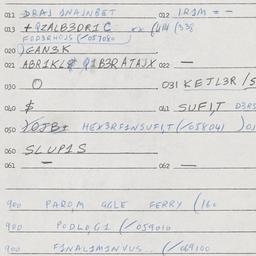 011 DRAJ 1NAJNBET 012 1R1M = -
013 + QZALB3DR1C xx (414 (33
FOD3RHOJS (/057080)
020 )GAN3K
021 ABR1KL Q1B3RATAJX 022 —
030 O 031 KETL3R /5
040 $ 041 SUFIT D3RS
050 )OJB1 HEX3RF1NSUF1,T (/058041 )01
060 SLUP1S
061 — 062 —
900 PAROM GGLE FERRY (160
900 PODLOG1 (/059010
900 F1NAL1M1NVUS... (/069100